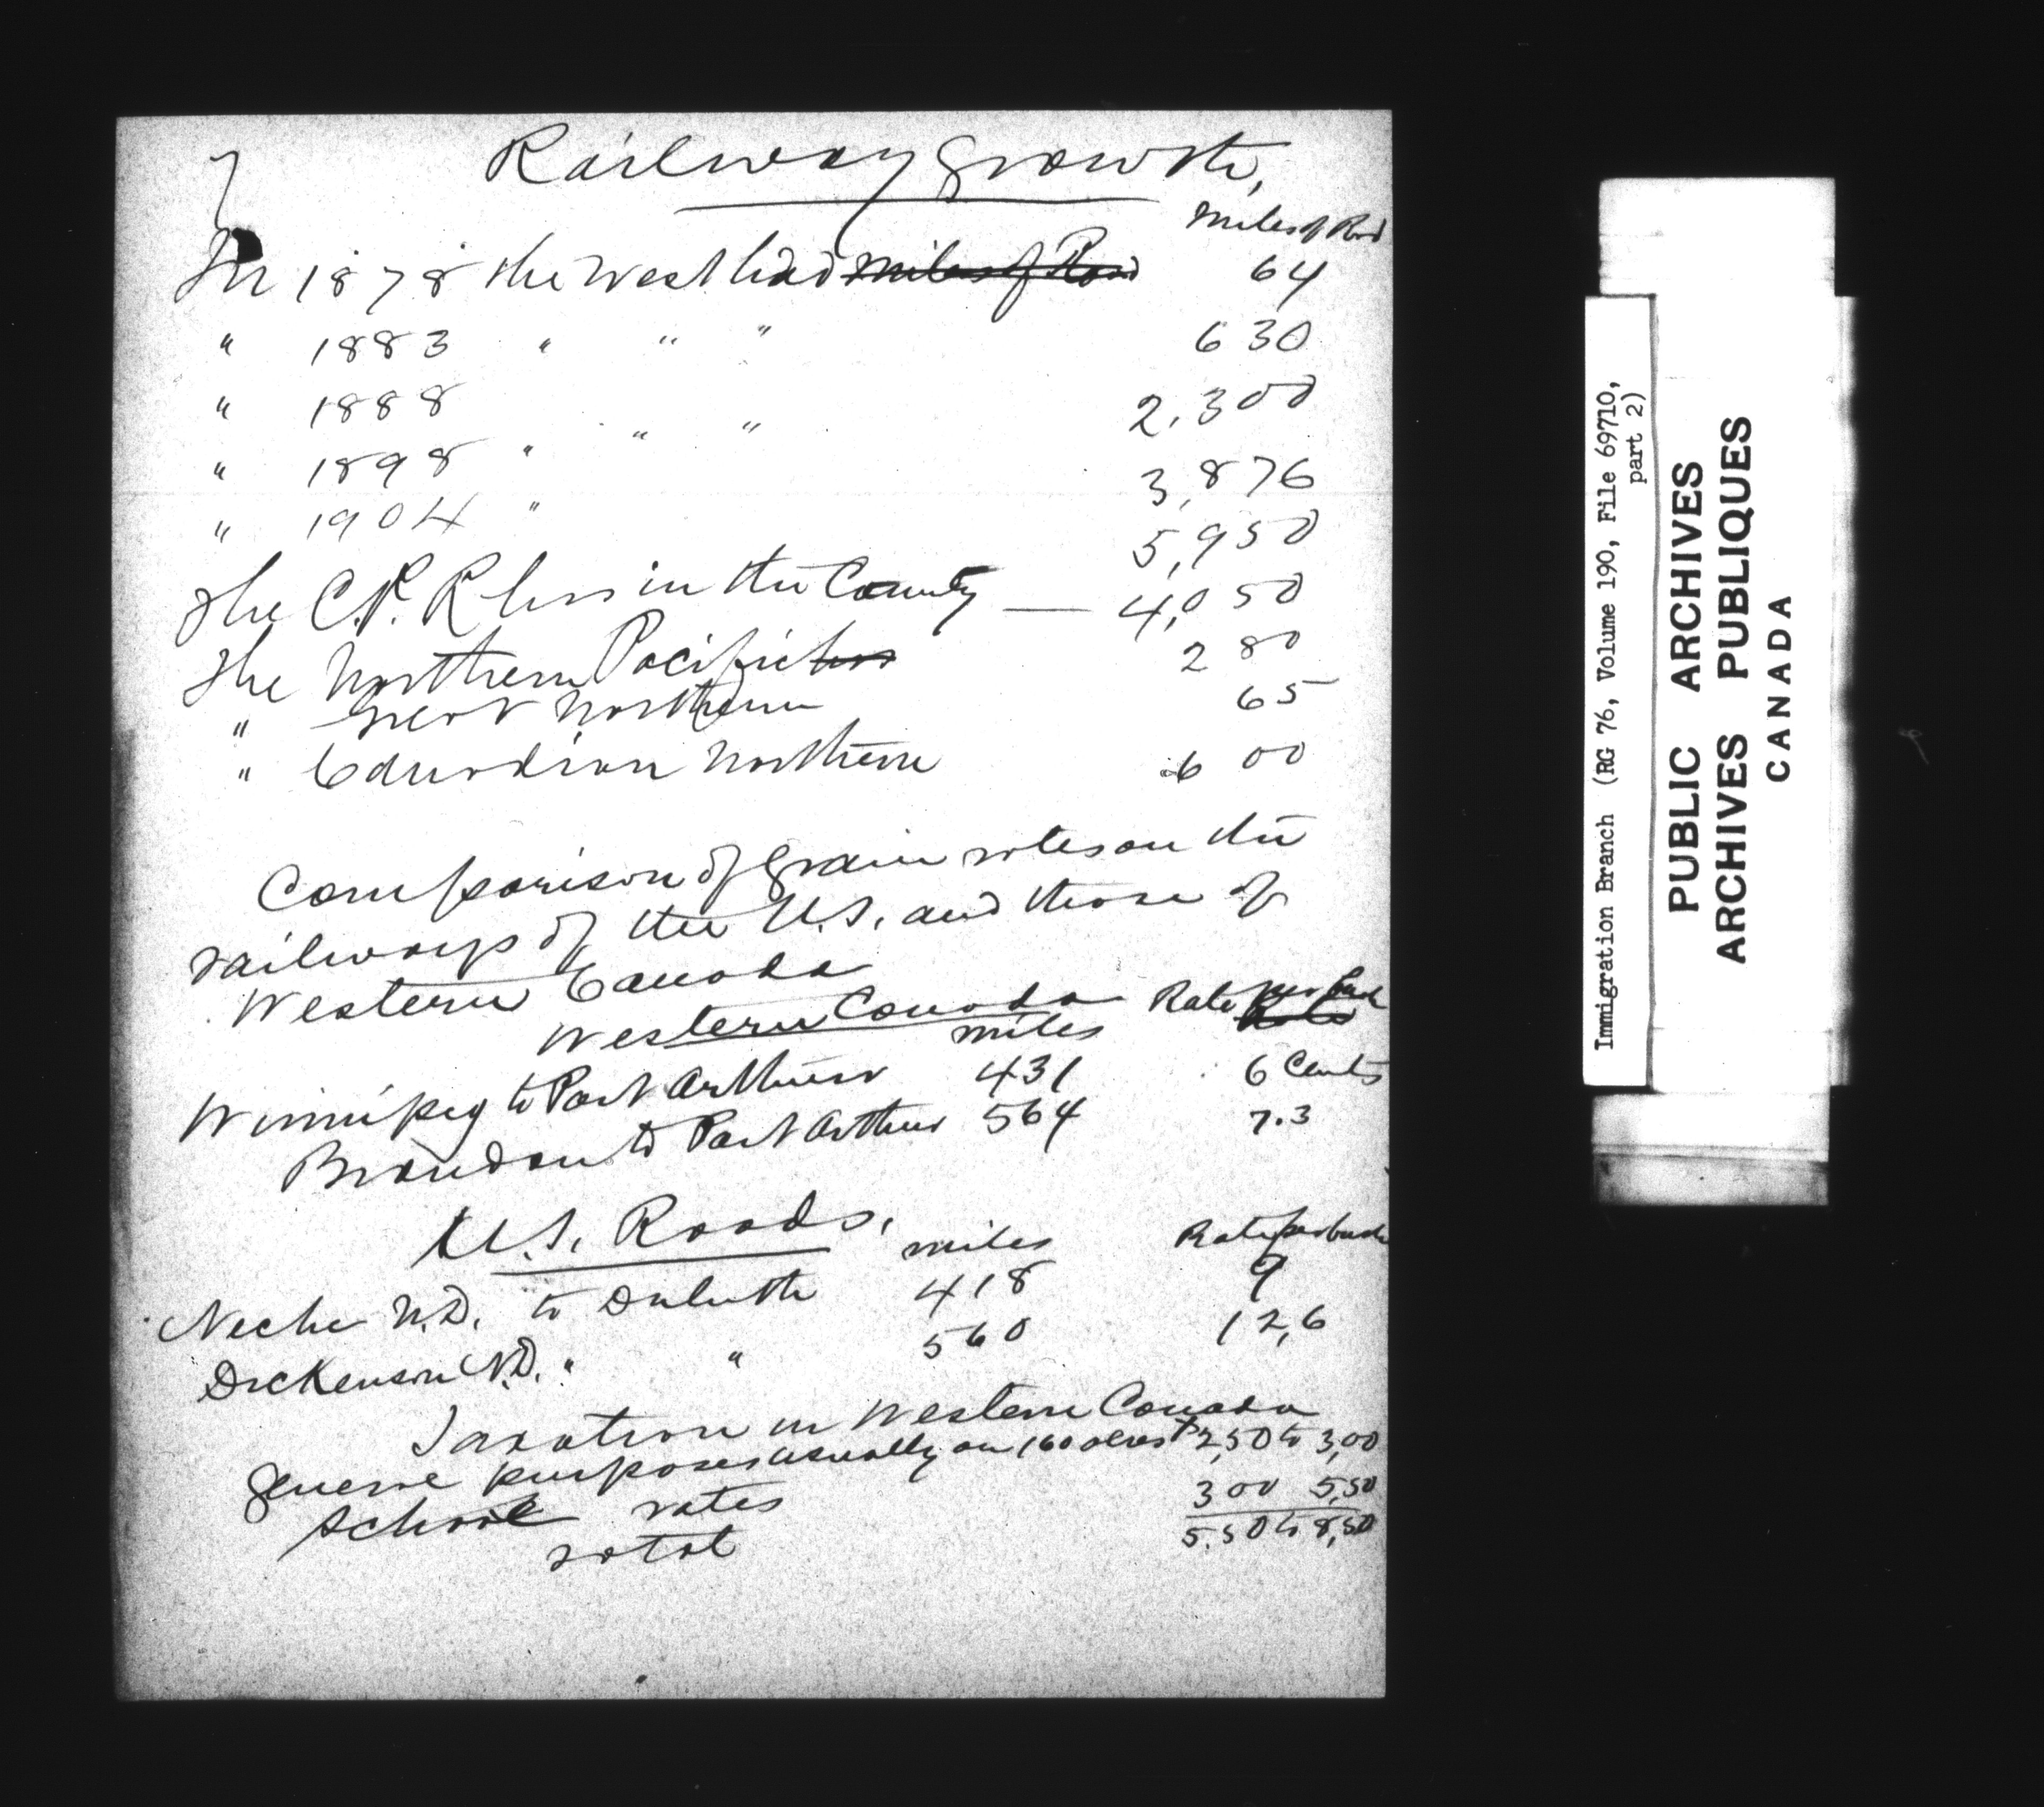 7
Railway Growth,
Miles of Road
In 1878 the West had miles of Road 64
" 1883 " " " 630
" 1888 2,300
" 1898 " " " 3,876
" 1904 " 5,950
The C.P.R has in the County — 4,050
The Northern Pacific has 280
" Great Northern 65
" Canadian Northern 600
Comparison of Grain rates on the
railways of the U.S. and those of
Western Canada
Western Canada miles Rate per bush
Winnipeg to Port Arthur 431 6 Cents
Brandon to Port Arthur 564 7.3
U.S. Roads. miles Rate per bush
Neche N.D. to Duluth 418 9
Dickenson N.D. " " 560 12,6
Taxation in Western Canada
general purposes usually on 160 acres $2,50 to 3,00
School rates 300 5,50
total 5.50 to 8,50
Immigration Branch (RG 76, Volume 190, File 69710,
part 2)
PUBLIC ARCHIVES
ARCHIVES PUBLIQUES
CANADA